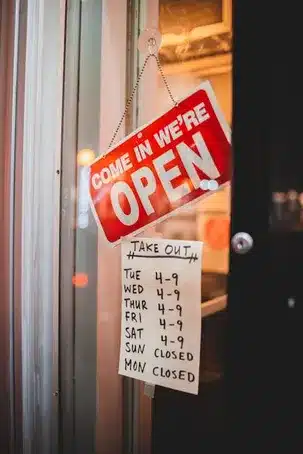 COME IN WE'RE
OPEN
TAKE OUT
TUE 4-9
WED 4-9
THUR 4-9
FRI 4-9
SAT 4-9
SUN CLOSED
MON CLOSED